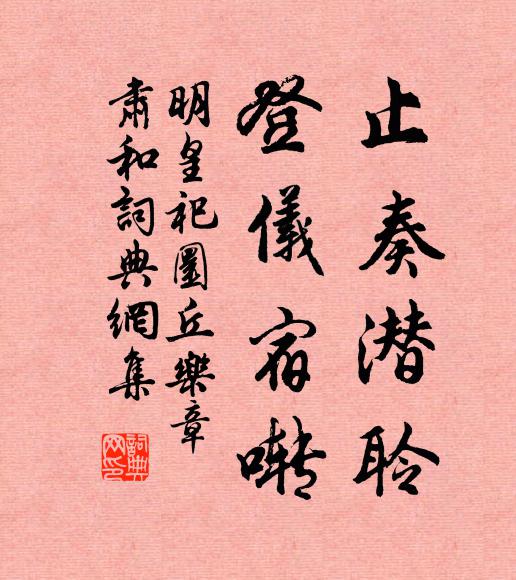 止奏潜聆
登儀宿囀
明皇祀圜丘樂章
肅和詞典網集
詞典網印